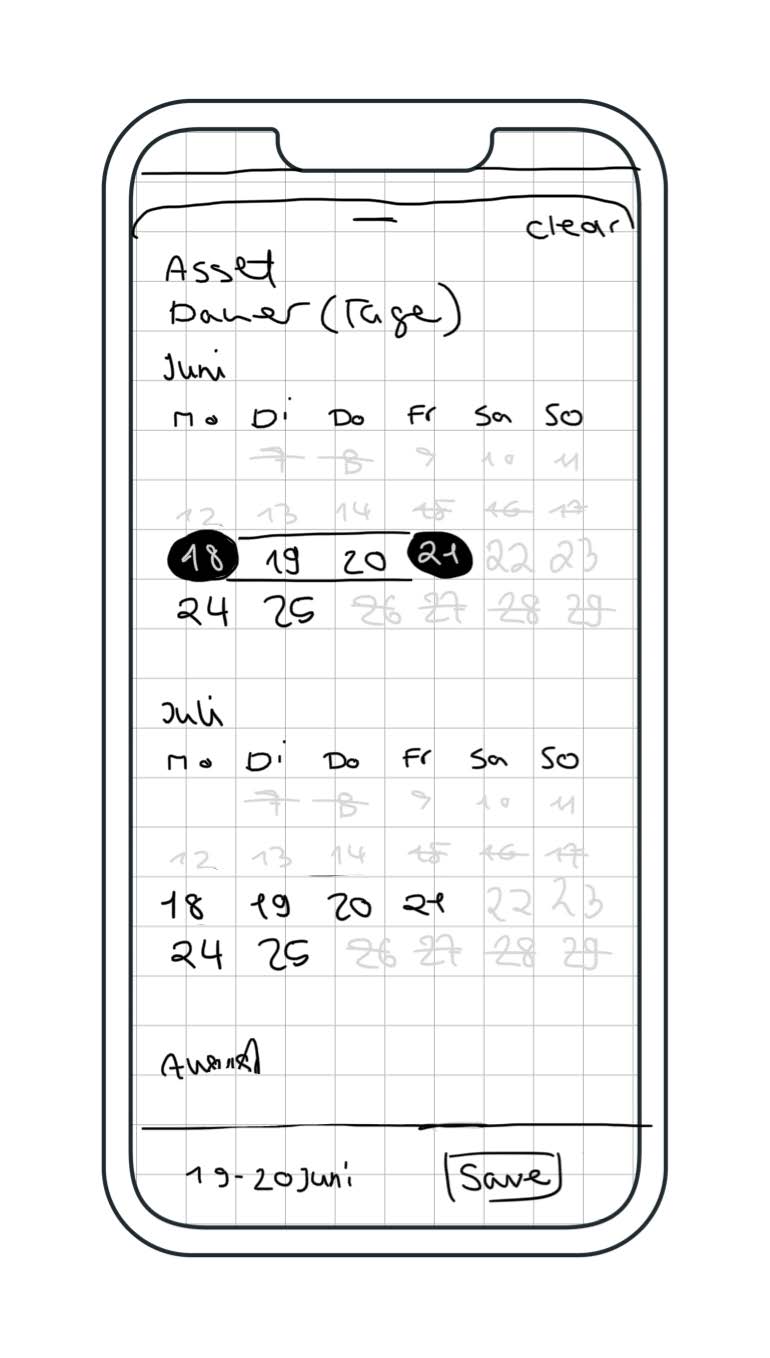 clear
Asset
Dauer (Tage)
Juni
Mo Di Do Fr Sa So
7 8 9 10 11
12 13 14 15 16 17
18 19 20 21 22 23
24 25 26 27 28 29
Juli
Mo Di Do Fr Sa So
7 8 9 10 11
12 13 14 15 16 17
18 19 20 21 22 23
24 25 26 27 28 29
19-20 Juni
Save